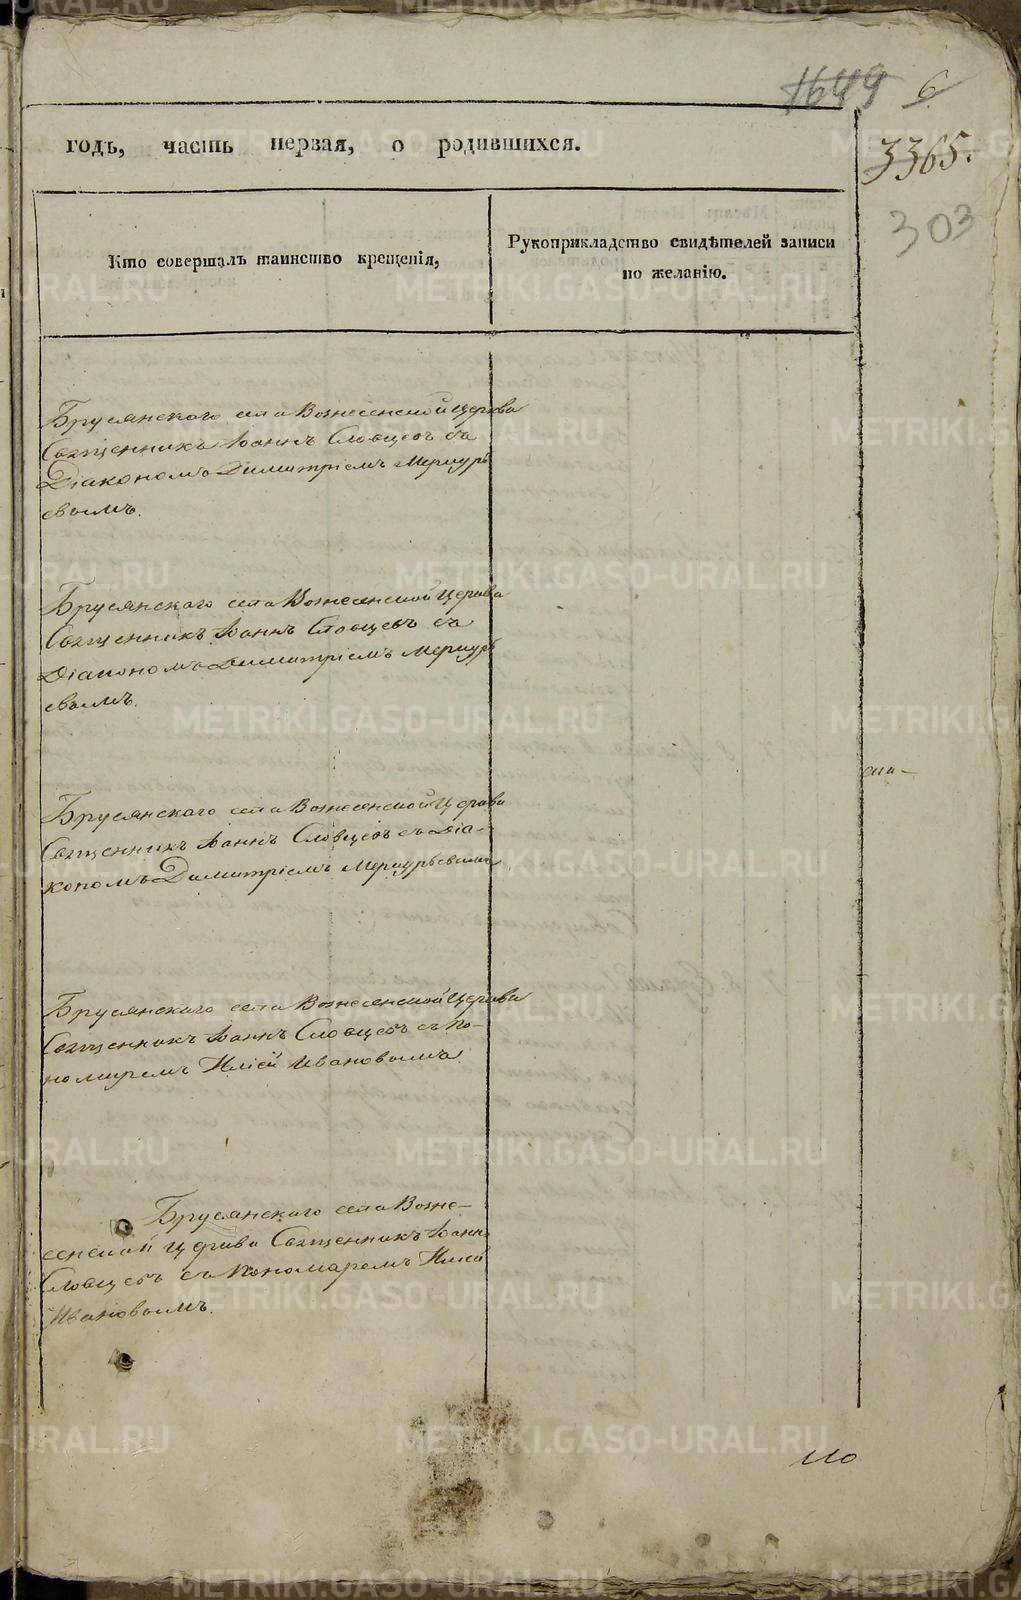 1649 6
годъ, часть первая, о родившихся.
3365.
303
Кто совершалъ таинство крещенія,
Рукоприкладство свидѣтелей записи
по желанію.
Брусянскаго села Вознесенской церкви
Священникъ Іоаннъ Словцевъ съ
Діакономъ Димитріемъ Меркурь
евымъ.
Брусянскаго села Вознесенской церкви
Священникъ Іоаннъ Словцевъ съ
Діакономъ Димитріемъ Меркурь
евымъ.
Брусянскаго села Вознесенской церкви
Священникъ Іоаннъ Словцевъ съ Діа-
кономъ Димитріемъ Меркурьевымъ
Брусянскаго села Вознесенской церкви
Священникъ Іоаннъ Словцевъ съ по-
номаремъ Иліей Ивановымъ
Брусянскаго села Возне-
сенской церкви Священникъ Іоаннъ
Словцевъ съ Пономаремъ Иліей
Ивановымъ.
METRIKI.GASO-URAL.RU